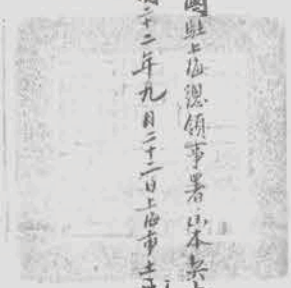 國駐上海總領事署山本
二十二年九月二十二日上海市土